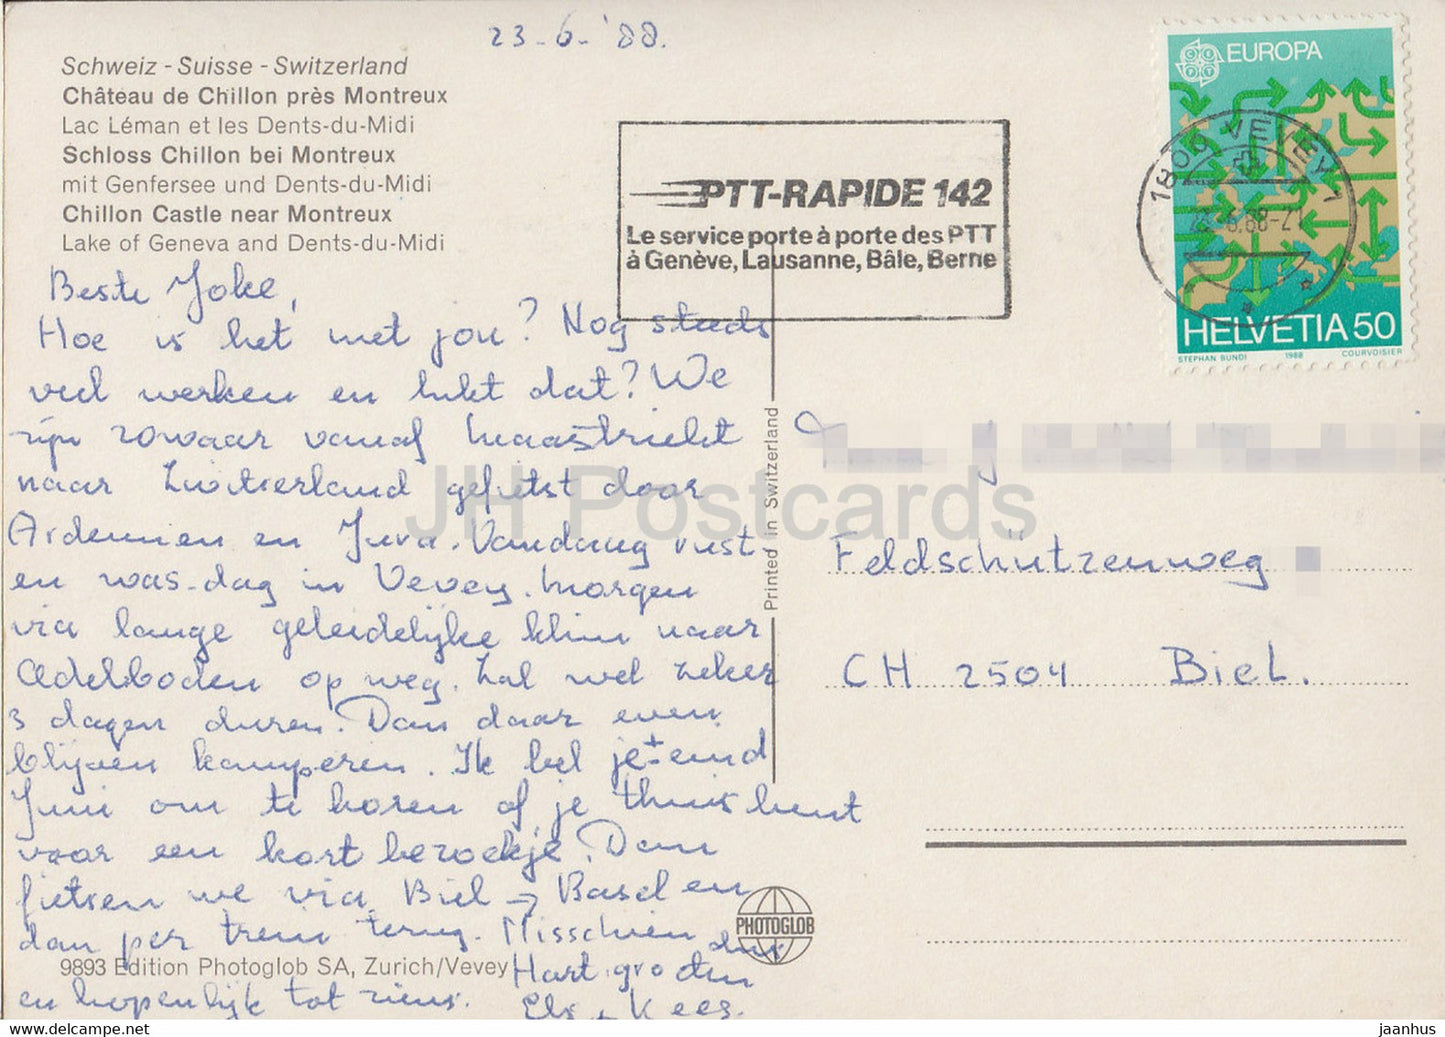 23-6-'88.
Schweiz - Suisse - Switzerland
Château de Chillon près Montreux
Lac Léman et les Dents-du-Midi
Schloss Chillon bei Montreux
mit Genfersee und Dents-du-Midi
Chillon Castle near Montreux
Lake of Geneva and Dents-du-Midi
PTT-RAPIDE 142
Le service porte à porte des PTT
à Genève, Lausanne, Bâle, Berne
EUROPA
CEPT
1800 VEVEY 1
HELVETIA 50
STEPHAN BUNDI 1988 COURVOISIER
Beste Joke,
Hoe is het met jou? Nog steeds
veel werken en lukt dat? We
zijn zowaar vanaf Maastricht
naar Zwitserland gefietst door
Ardennen en Jura. Vandaag rust
en was-dag in Vevey. Morgen
via lange geleidelijke klim naar
Adelboden op weg. Zal wel zeker
3 dagen duren. Dan daar even
blijven kamperen. Ik bel je ± eind
Juni om te horen of je thuis bent
voor een kort bezoekje. Dan
fietsen we via Biel → Basel en
dan per trein terug. Misschien dus
en hopenlijk tot ziens.
Hart. groeten
Els + Kees.
Printed in Switzerland
Feldschützenweg
CH 2504 Biel.
PHOTOGLOB
9893 Edition Photoglob SA, Zurich/Vevey
JH Postcards
www.hippostcard.com/store/jh-postcards
jaanhus